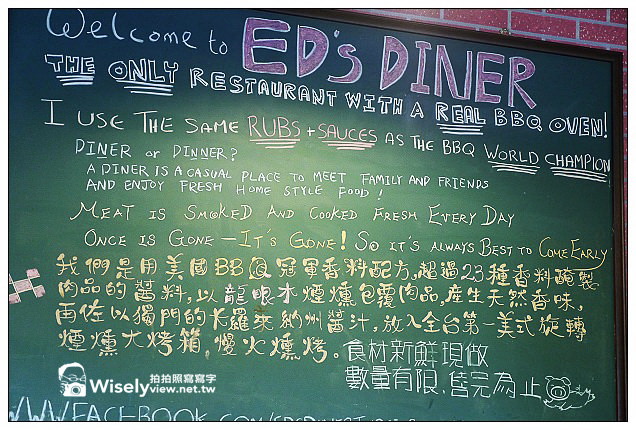 Welcome to ED'S DINER
THE ONLY RESTAURANT WITH A REAL BBQ OVEN!
I USE THE SAME RUBS + SAUCES AS THE BBQ WORLD CHAMPION
DINER or DINNER?
A DINER IS A CASUAL PLACE TO MEET FAMILY AND FRIENDS
AND ENJOY FRESH HOME STYLE FOOD!
MEAT IS SMOKED AND COOKED FRESH EVERY DAY
ONCE IS GONE - IT'S GONE! SO IT'S ALWAYS BEST TO COME EARLY
我們是用美國BBQ冠軍香料配方,超過23種香料醃製
肉品的醬料,以龍眼木煙燻包覆肉品,產生天然香味,
再佐以獨門的卡羅萊納州醬汁,放入全台第一美式旋轉
煙燻大烤箱,慢火燻烤。
食材新鮮現做
數量有限,售完為止
Wisely 拍拍照寫寫字
view.net.tw
WWW.FACEBOOK.COM/